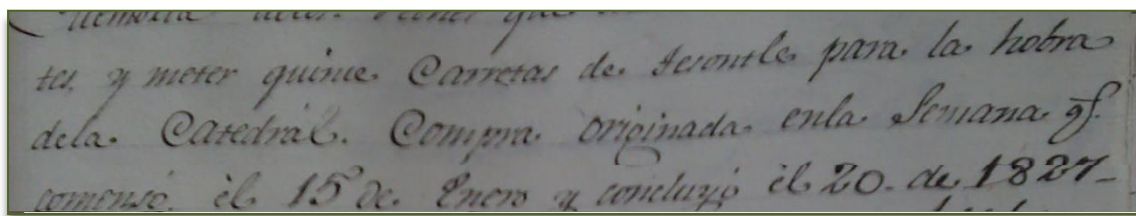 Memoria delos
tes, y meter quince Carretas de tesontle para la hobra
dela Catedral. Compra originada enla Semana q.
comensó el 15 de Enero y concluyó el 20. de 1827_